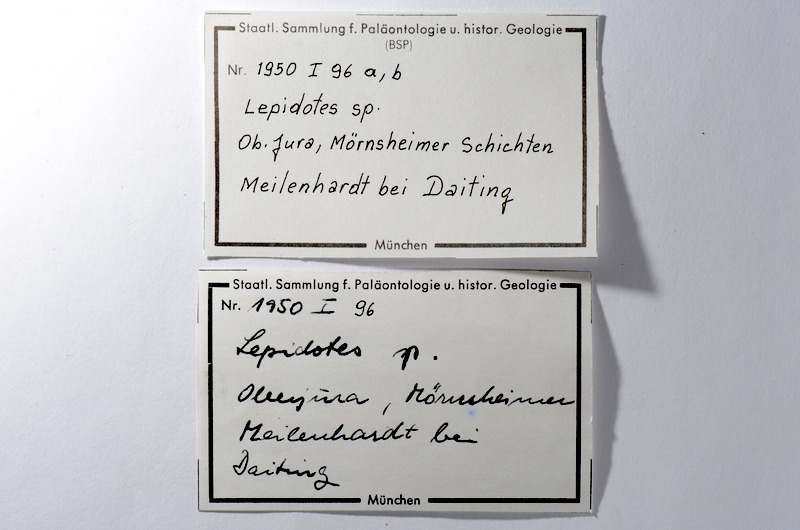 Staatl. Sammlung f. Paläontologie u. histor. Geologie
(BSP)
Nr. 1950 I 96 a, b
Lepidotes sp.
Ob. Jura, Mörnsheimer Schichten
Meilenhardt bei Daiting
München
Staatl. Sammlung f. Paläontologie u. histor. Geologie
Nr. 1950 I 96
Lepidotes sp.
Oberjura, Mörnsheimer
Meilenhardt bei
Daiting
München